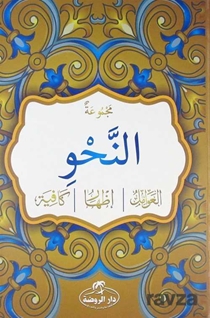 مجموعة
النَّحْوِ
العوامل | إظهار | كافية
دار الروضة
ravza